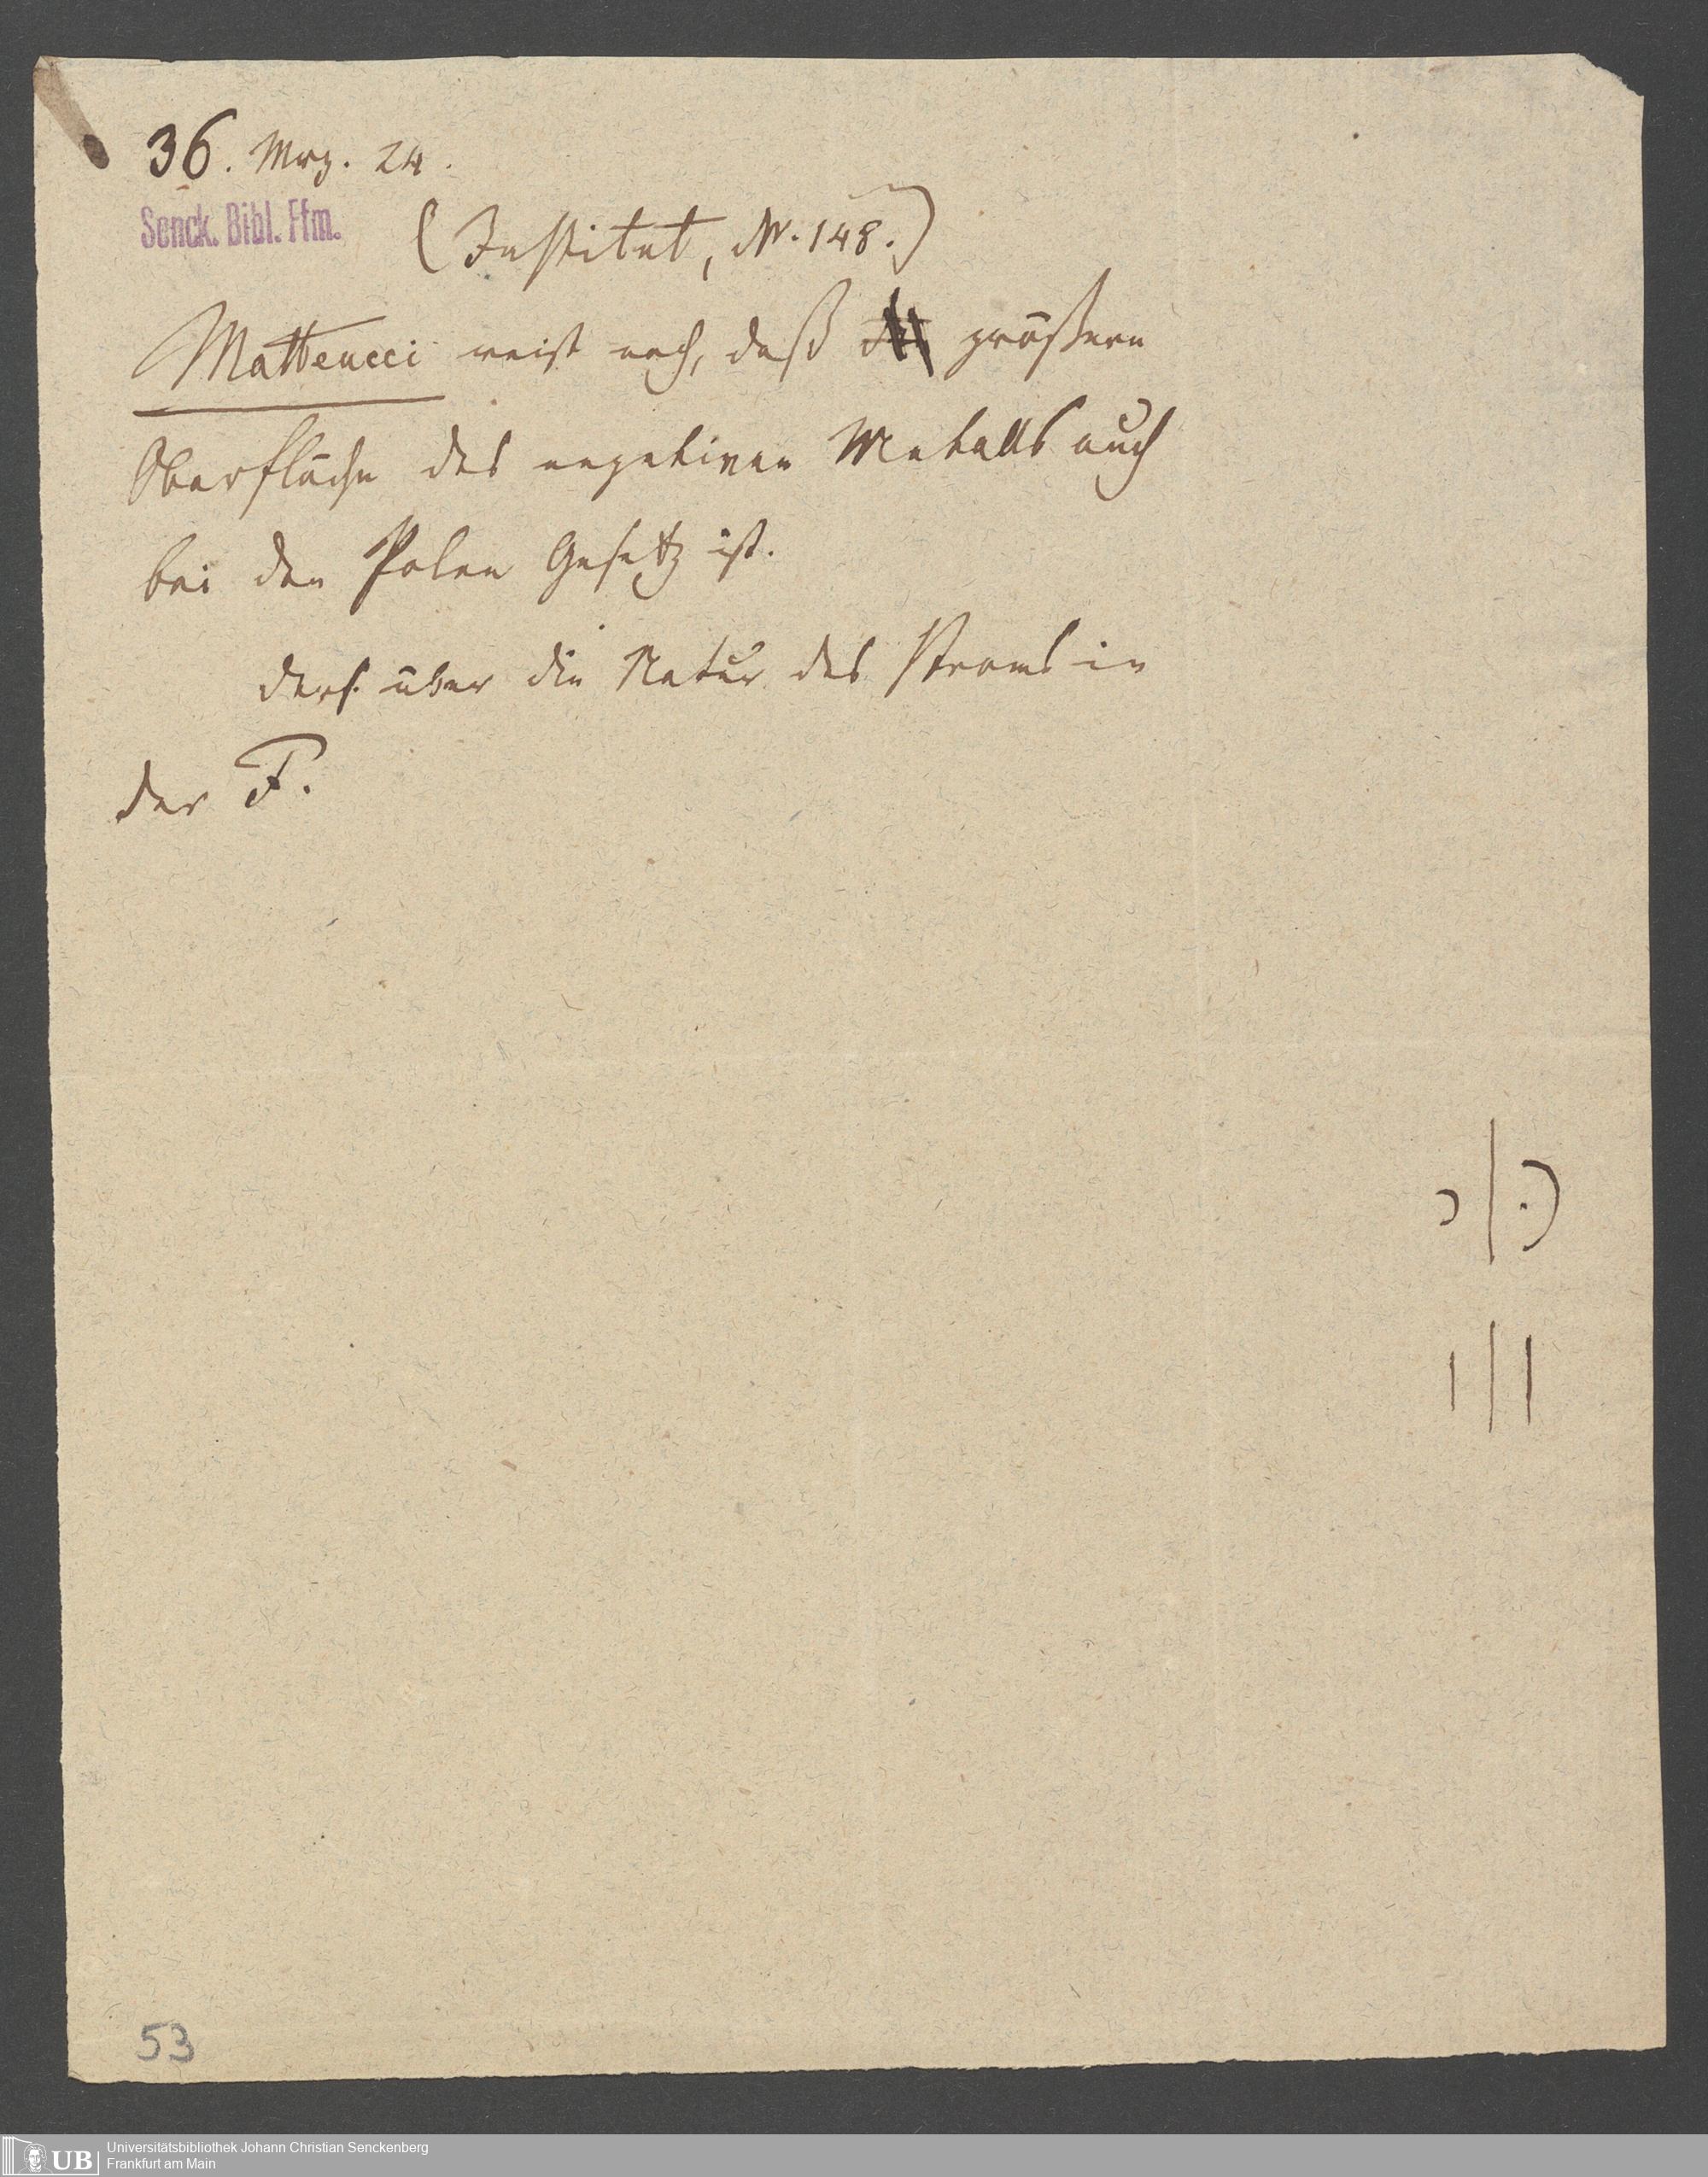 36. Mrz. 24.
Senck. Bibl. Ffm.
(Institut, Nr. 148.)
Matteucci weist nach, daß größere
Oberfläche des negativen Metalls auch
bei den Polen Gesetz ist.
Ders. über die Natur des Stroms in
der F.
53
UB
Universitätsbibliothek Johann Christian Senckenberg
Frankfurt am Main